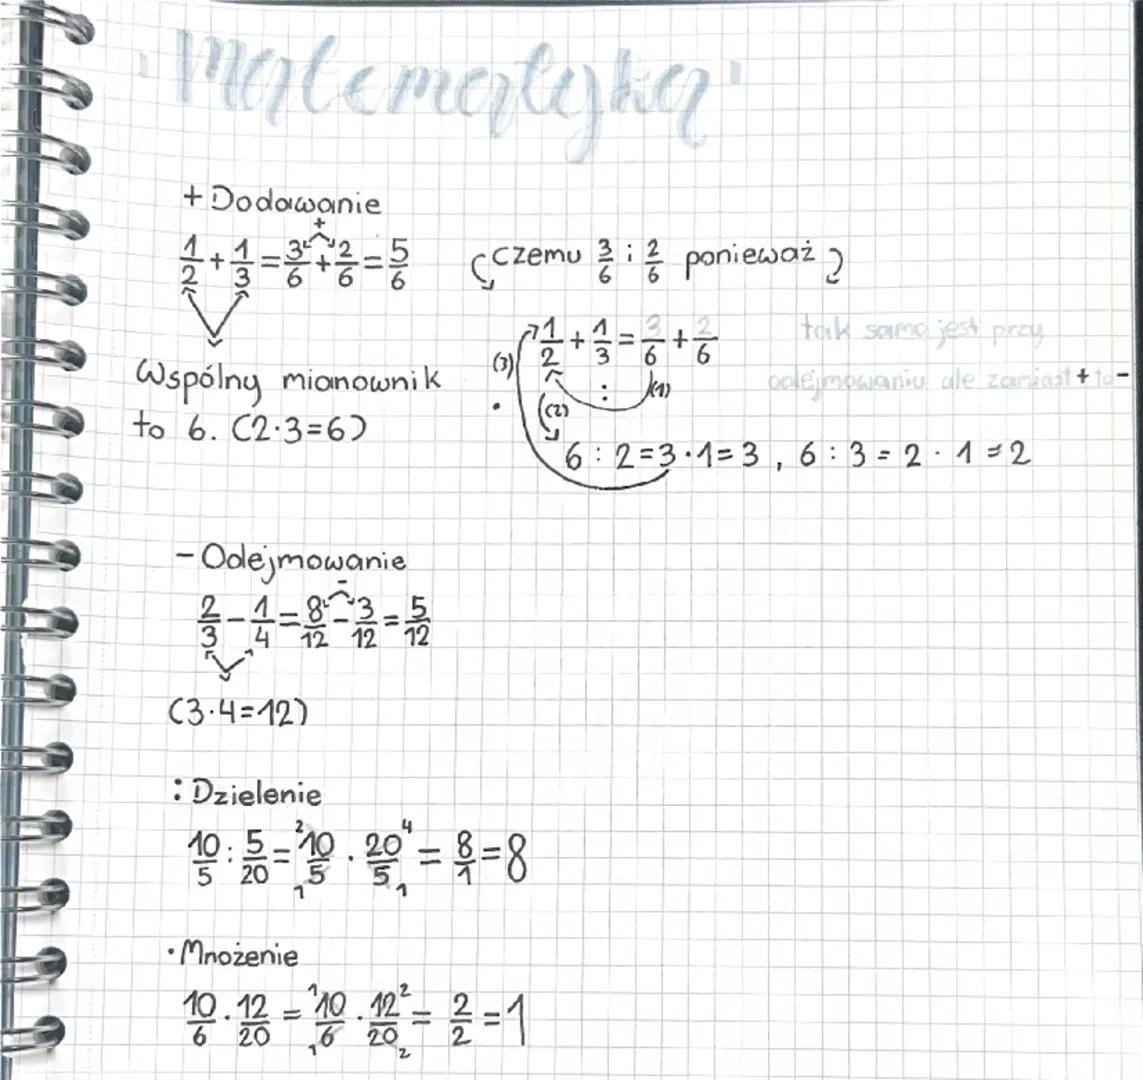 "Matematyka"
+ Dodawanie
+
1/2 + 1/3 = 3/6 + 2/6 = 5/6
czemu 3/6 i 2/6 ponieważ
Wspólny mianownik
to 6. (2·3=6)
(3) 1/2 + 1/3 = 3/6 + 2/6
: (1)
(2)
6 : 2 = 3 · 1 = 3 , 6 : 3 = 2 · 1 = 2
tak samo jest przy
odejmowaniu ale zamiast + to -
- Odejmowanie
-
2/3 - 1/4 = 8/12 - 3/12 = 5/12
(3·4=12)
: Dzielenie
10/5 : 5/20 = ²10/5₁ · 20⁴/5₁ = 8/1 = 8
· Mnożenie
10/6 · 12/20 = ¹10/6₁ · 12²/20₂ = 2/2 = 1